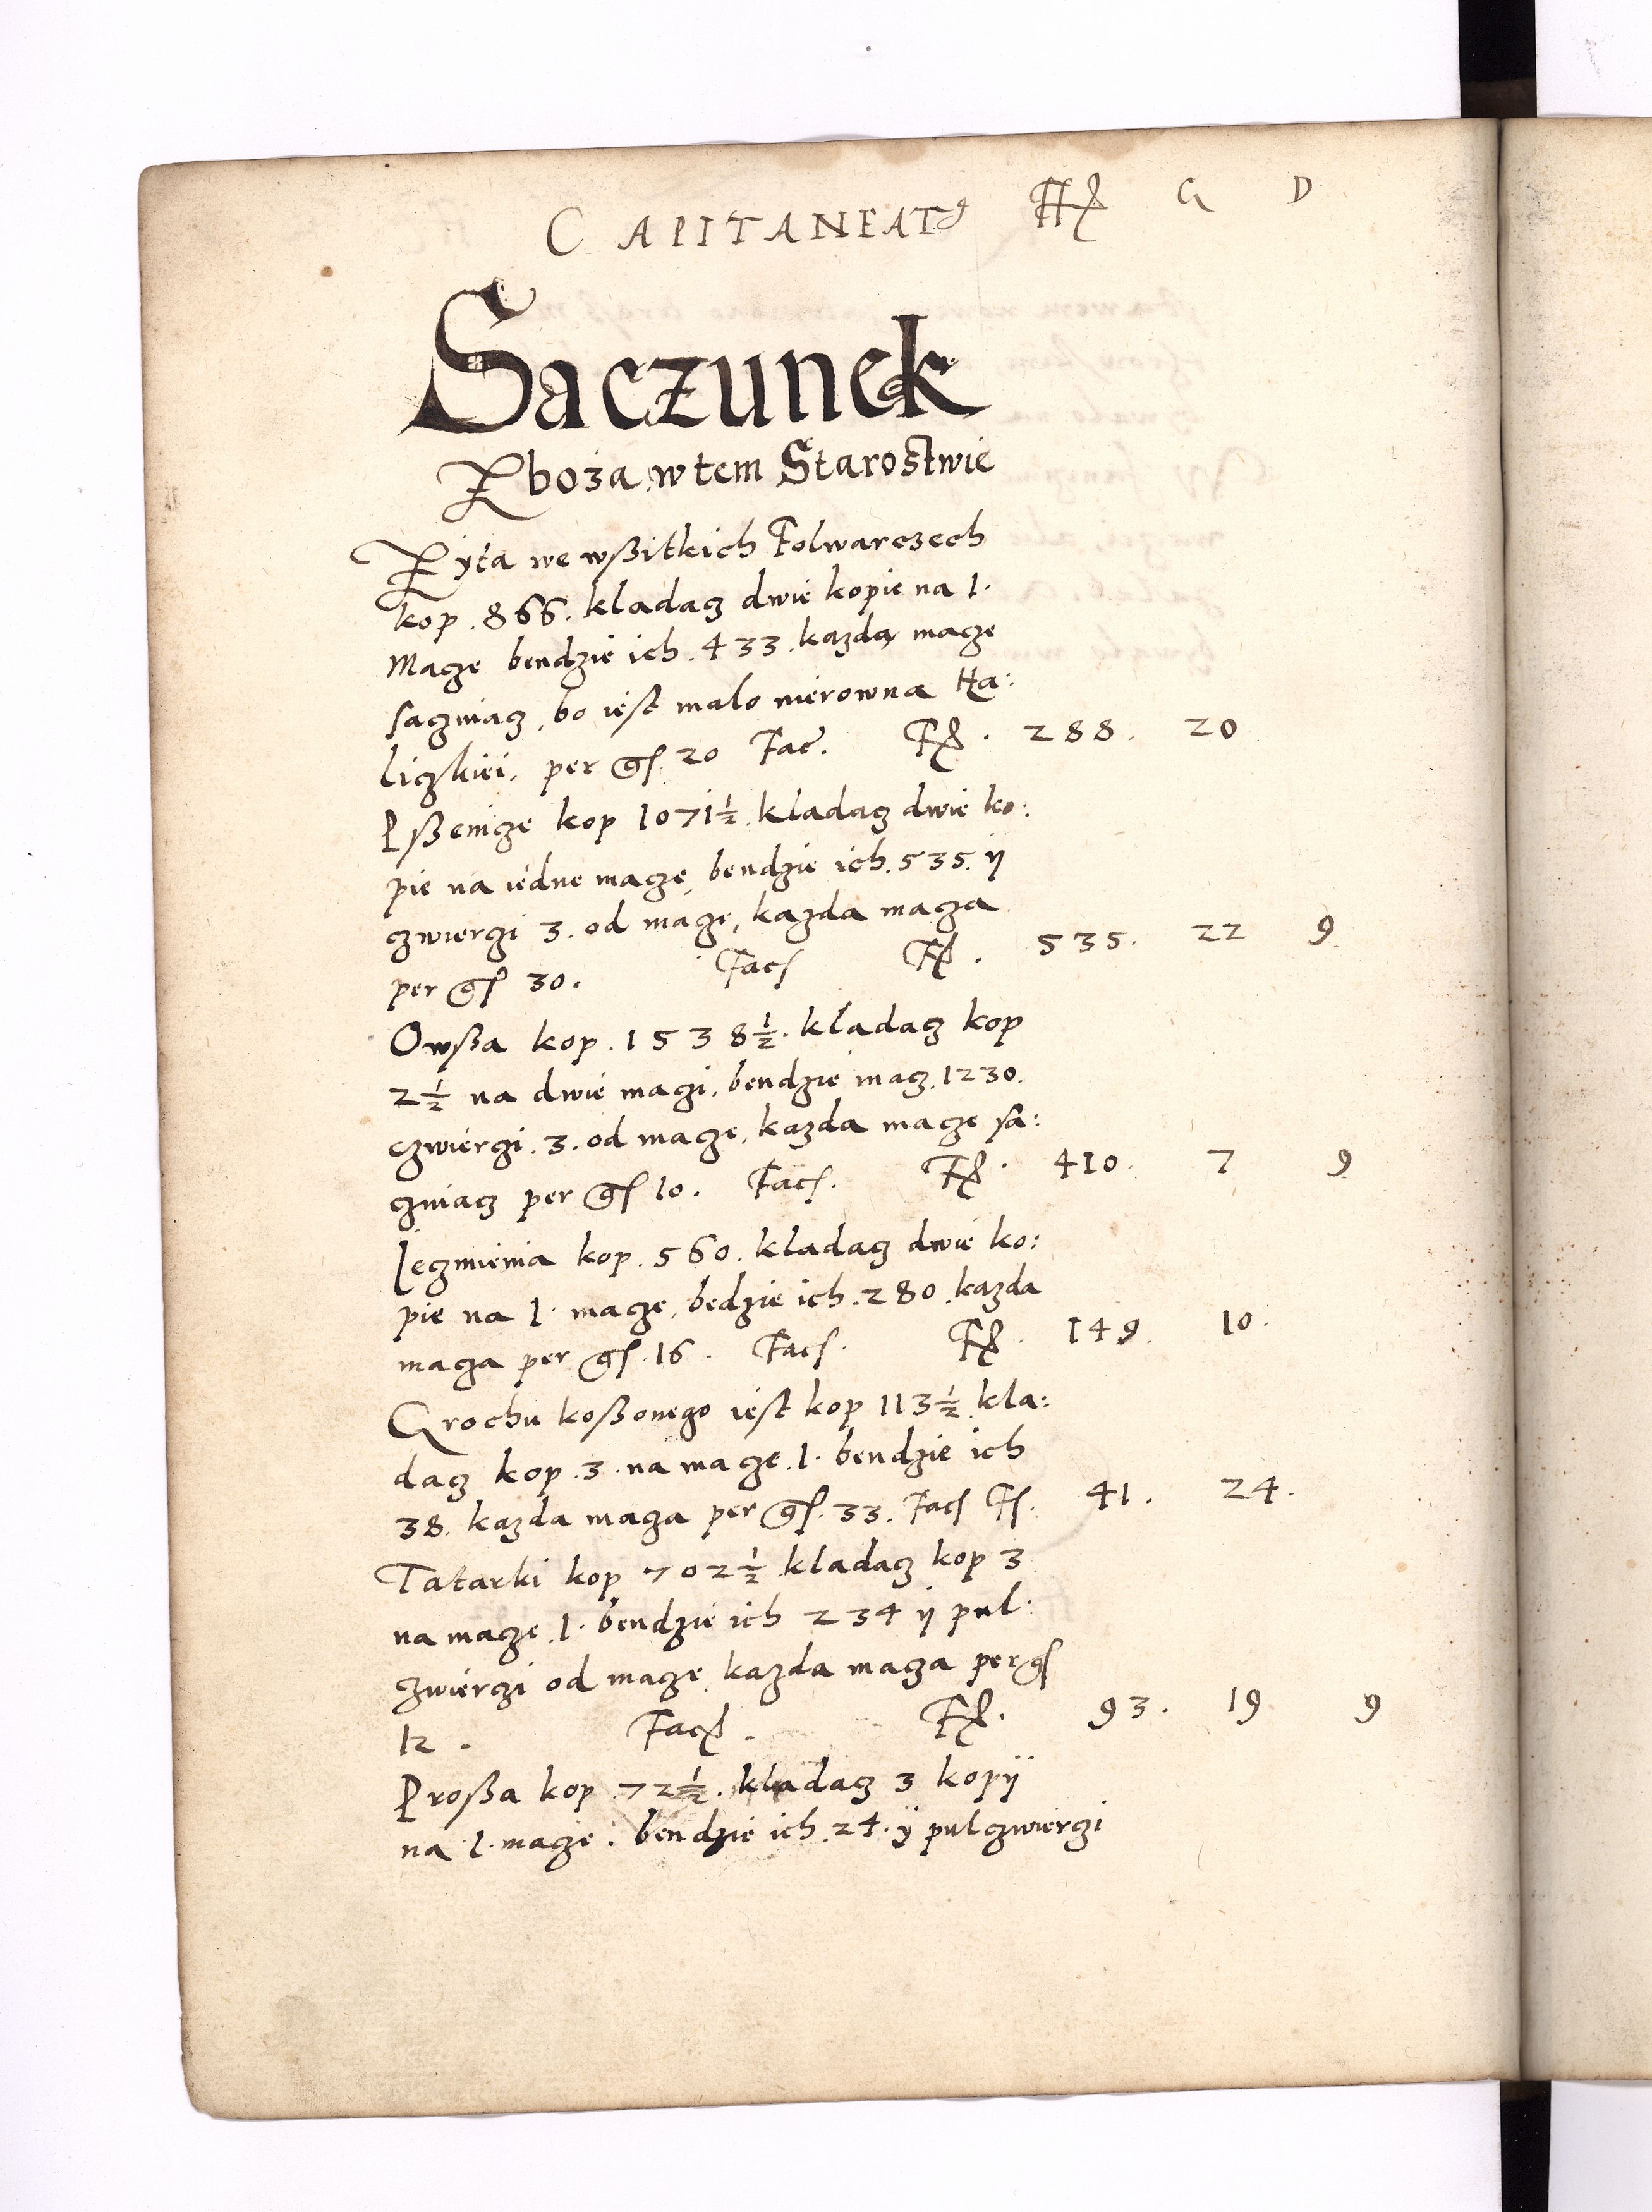 CAPITANEAT9 Fl G D
Saczunek
Zboza w tem Starostwie
Zyta we wßitkich Folwarczech
kop. 866. kladacz dwie kopie na 1.
Macze bendzie ich. 433. kazda macze
saczuiacz, bo iest malo nierowna Ha:
liczkiei. per gs 20 Fac. Fl. 288. 20
Pßenicze kop 1071½ kladacz dwie ko:
pie na iedne macze, bendzie ich. 535. ÿ
czwierczi 3. od macze, kazda macza
per gs 30. Facs Fl. 535. 22 9
Owßa kop. 1538½. kladacz kop
2½ na dwie maczi. bendzie macz. 1230.
czwierczi. 3. od macze, kazda macze sa:
czuiacz per gs 10. Facs. Fl. 410. 7 9
Jeczmienia kop. 560. kladacz dwie ko:
pie na 1. macze, bedzie ich. 280. kazda
macza per gs. 16. Facs. Fl. 149. 10.
Grochu koßonego iest kop 113½ kla:
dacz kop. 3. na macze. 1. bendzie ich
38. kazda macza per gs. 33. Facs Fl. 41. 24.
Tatarki kop 702½ kladacz kop 3
na macze. 1. bendzie ich 234 ÿ pul:
czwierczi od macze, kazda macza per gs
12. Facs. Fl. 93. 19 9
Proßa kop. 72½. kladacz 3 kopÿ
na 1. macze. bendzie ich. 24. ÿ pulczwierczi